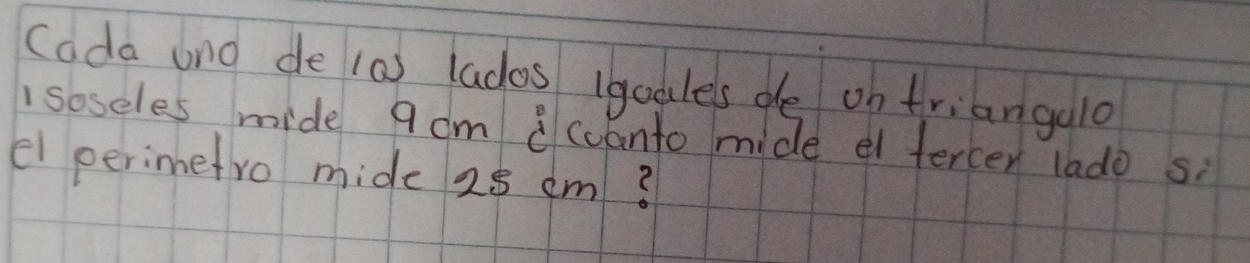 Cada uno de los lados iguales de un triangulo
isoseles mide 9 cm ¿cuanto mide el tercer lado si
el perimetro mide 25 cm?